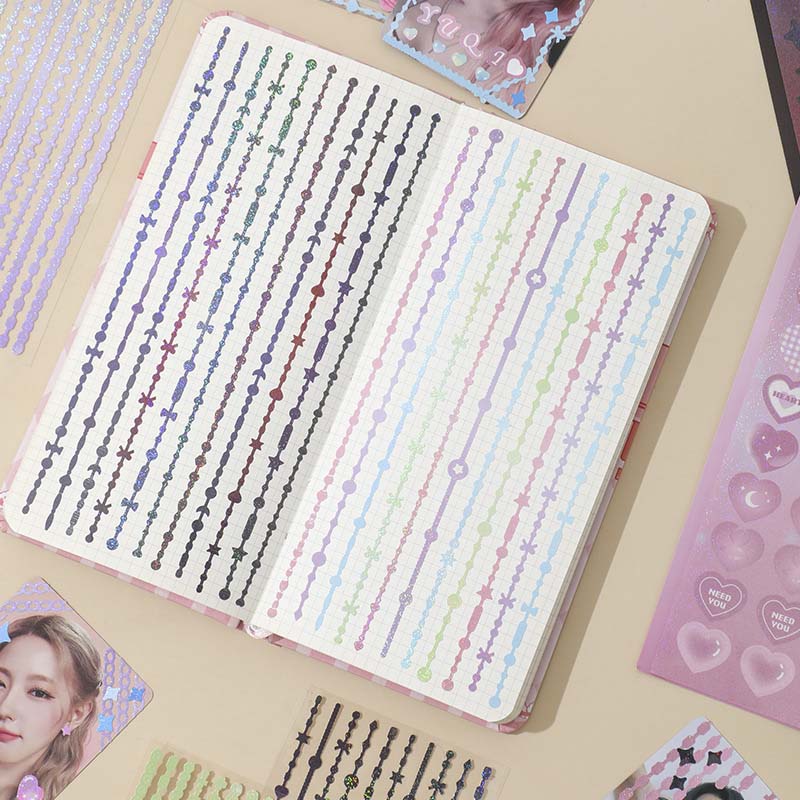 YUQI
HEART
NEED
YOU
NEED
YOU